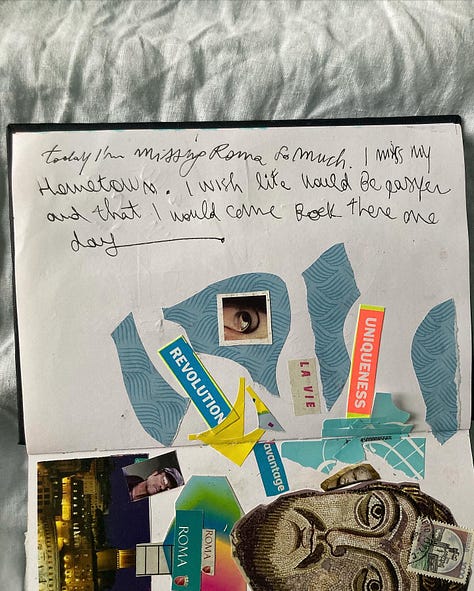 today I'm missing Roma so much. I miss my
Hometown. I wish life would be easyer
and that I would come Back there one
day
REVOLUTION
LA VIE
UNIQUENESS
avantage
ROMA
ROMA